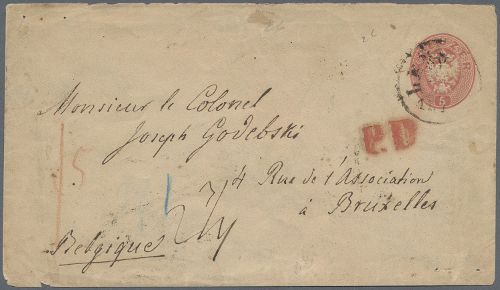 Monsieur le Colonel
Joseph Godebski
P.D
4 Rue de l'Association
à Bruxelles
Belgique
15
5